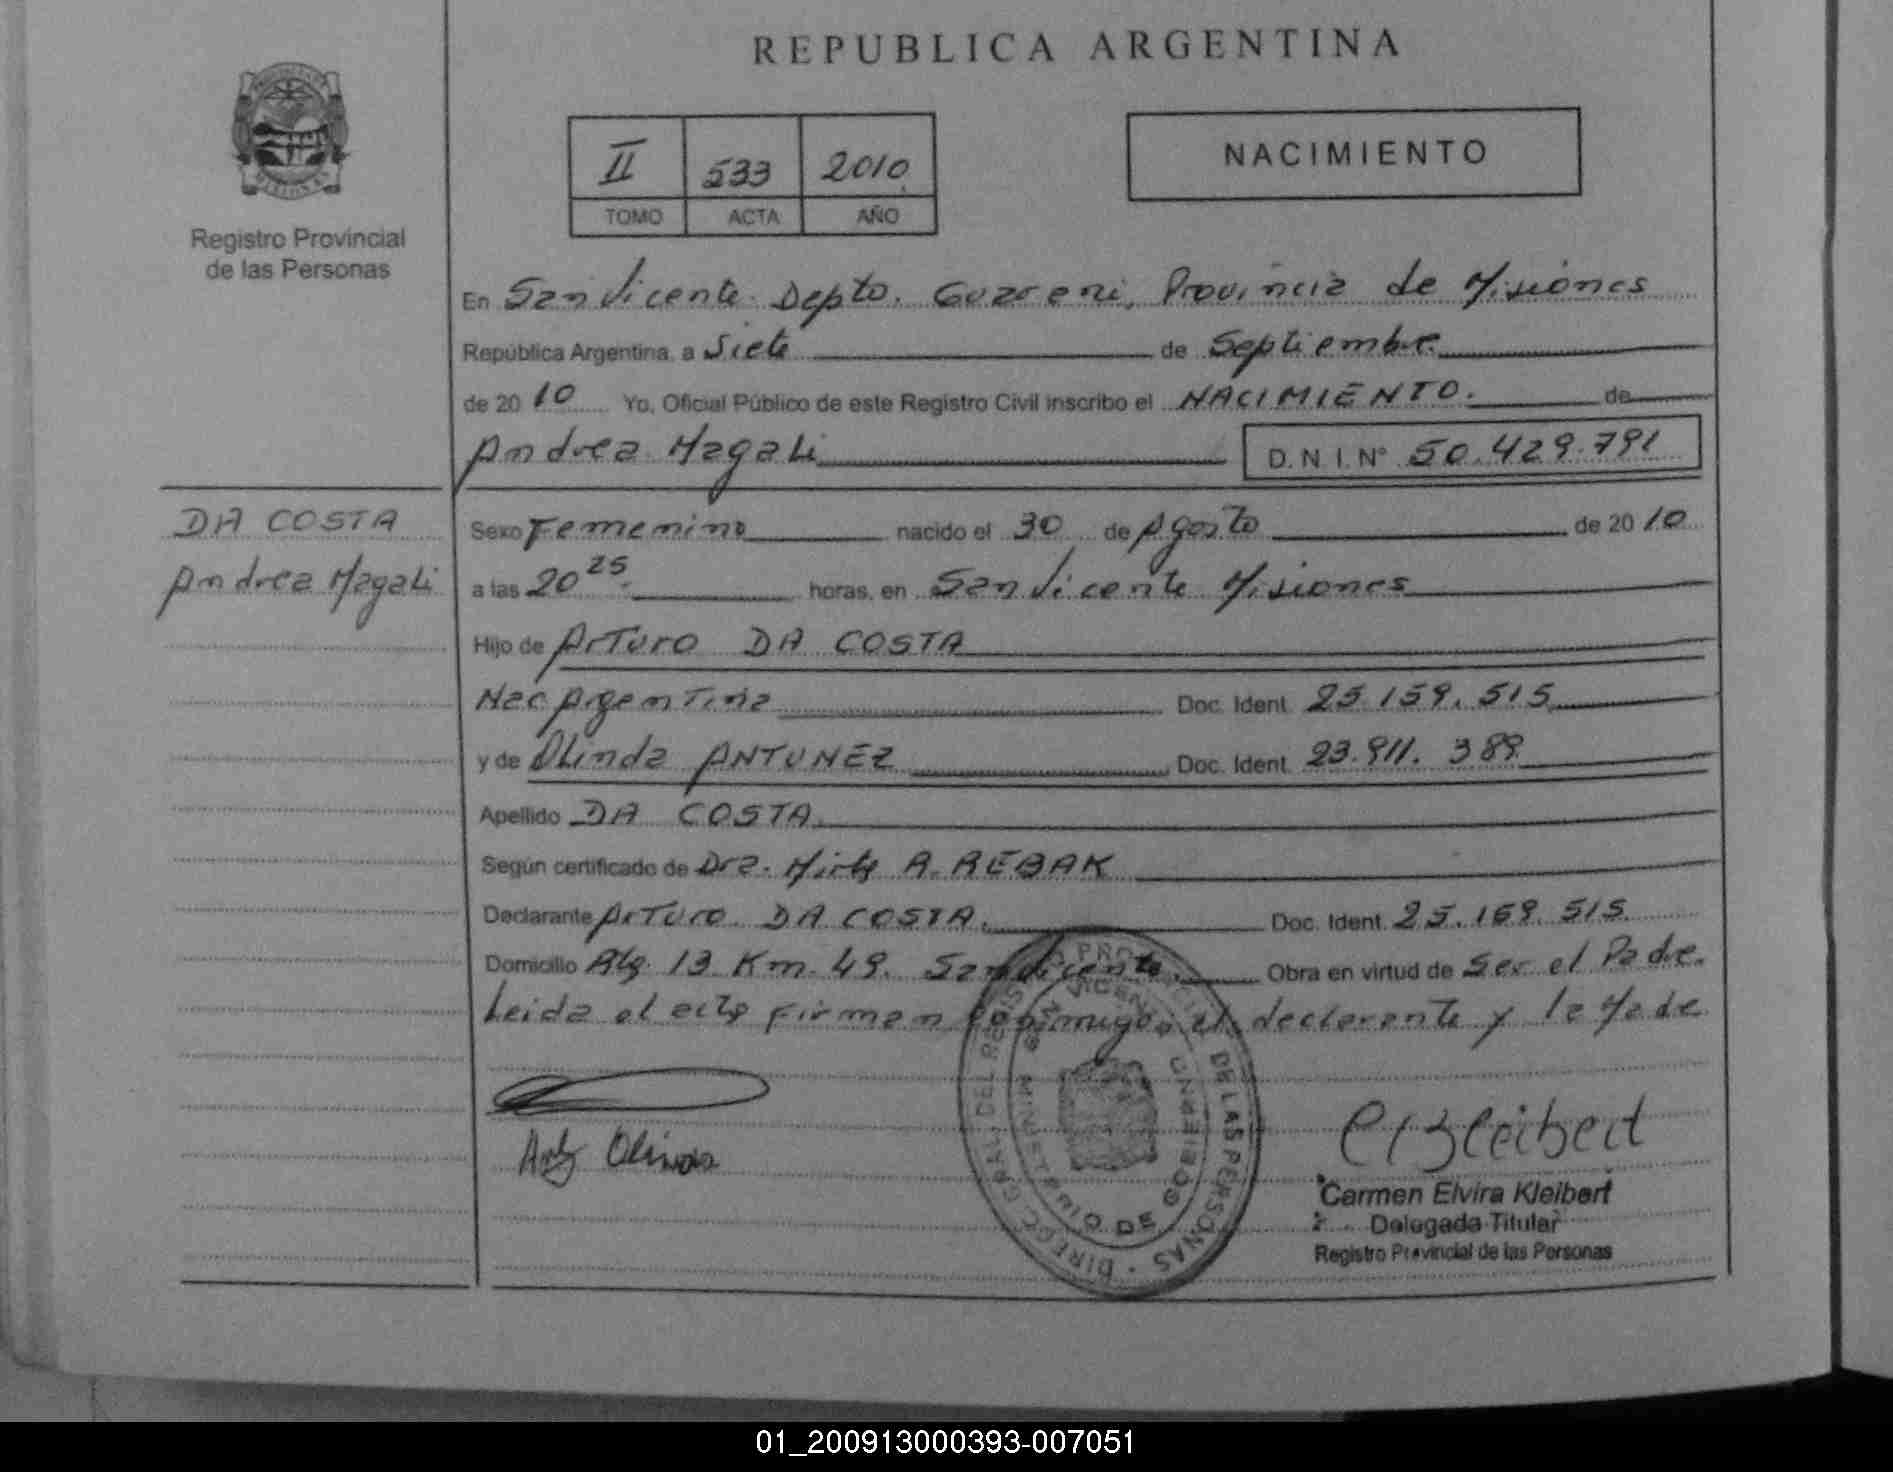 REPUBLICA ARGENTINA
Registro Provincial
de las Personas
II 533 2010
TOMO ACTA AÑO
NACIMIENTO
En San Vicente Depto. Guarani, Provincia de Misiones
República Argentina, a Siete de Septiembre
de 2010 Yo, Oficial Público de este Registro Civil inscribo el NACIMIENTO. de
Andrea Magali D.N.I.Nº 50.429.791
DA COSTA
Andrea Magali
Sexo Femenino nacido el 30 de Agosto de 2010
a las 20 25 horas, en San Vicente Misiones
Hijo de Arturo DA COSTA
Nac Argentina Doc. Ident. 25.159.515
y de Olinda ANTUNEZ Doc. Ident. 23.911.389
Apellido DA COSTA
Según certificado de Dra. Mirta A. REBAK
Declarante Arturo DA COSTA. Doc. Ident. 25.159.515
Domicilio Alg. 13 Km. 49. San Vicente. Obra en virtud de Ser el Padre.
Leida el acta firman conmigo, el declarante y la Made
DIRECC. GRAL. DEL REGISTRO PROVINCIAL DE LAS PERSONAS
MINISTERIO DE GOBIERNO
SAN VICENTE
Carmen Elvira Kleibert
Delegada Titular
Registro Provincial de las Personas
01_200913000393-007051